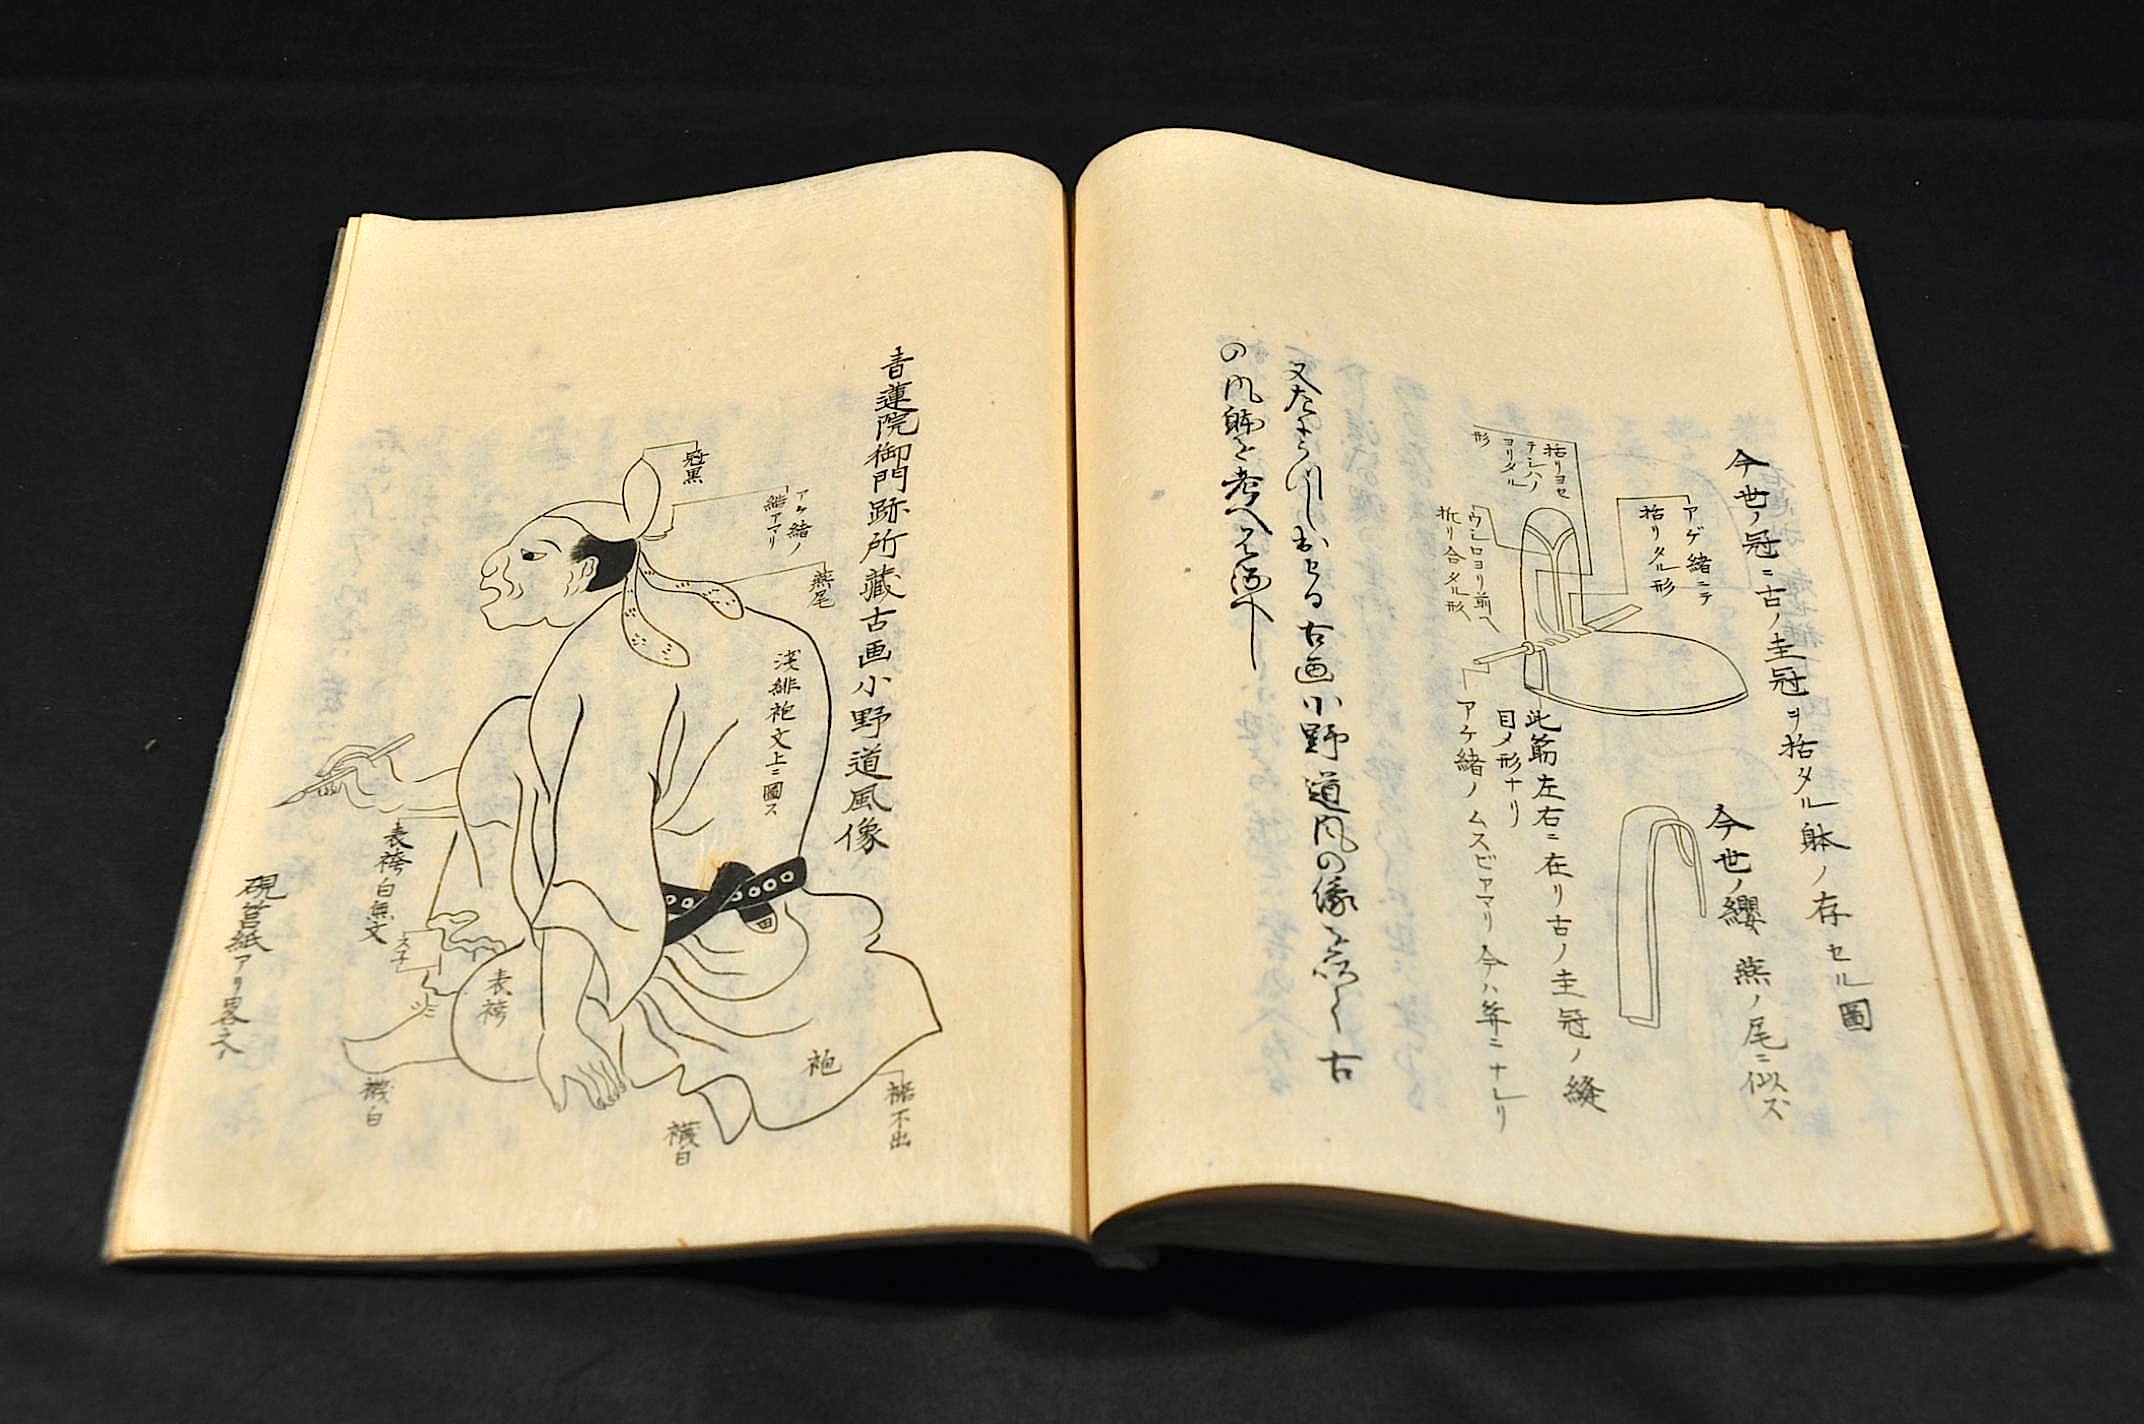 今世ノ冠ニ古ノ圭冠ヲ括タル躰ノ存セル圖
今世ノ纓燕ノ尾ニ似ズ
アゲ緒ニテ
括リタル形
括リヨセ
テシハノ
ヨリタル
形
ウシロヨリ前ヘ
折リ合タル形
此筋左右ニ在リ古ノ圭冠ノ縫
目ノ形ナリ
アケ緒ノムスビアマリ今ハ筭ニナレリ
古画小野道風の像
古
の風躰を考へ
青蓮院御門跡所藏古画小野道風像
冠黒
アケ緒ノ
結アマリ
燕尾
淺緋袍文上ニ圖ス
表袴白無文
表袴
袍
裾不出
襪白
襪白
硯筥紙アリ畧之